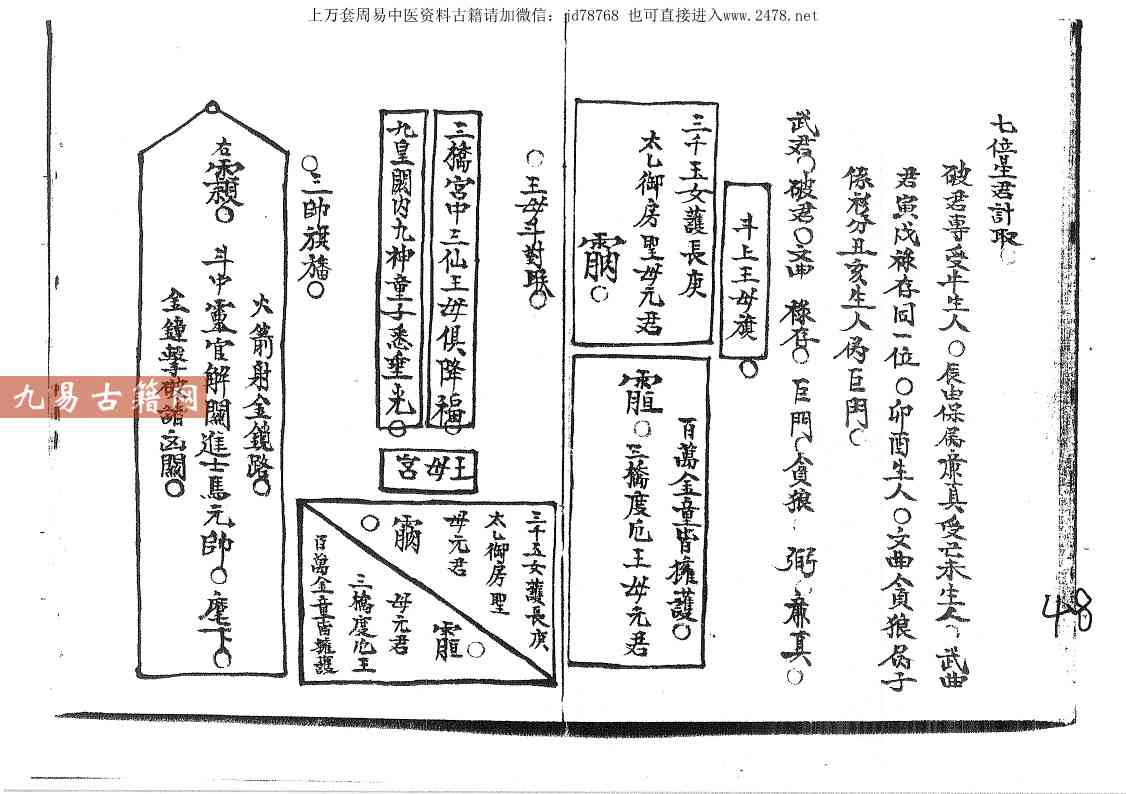 上万套周易中医资料古籍请加微信：jd78768 也可直接进入www.2478.net
七位星君計取○
破君專受午生人○辰申保属廉真受亡未生人、武曲
君寅戌祿存同一位○卯酉生人○文曲貪狼属子
係衫分丑亥生人属巨門○
武君○破君○文曲 祿存○巨門○貪狼、弼、廉真○
斗上王母旗○
三千玉女護長庚
太乙御房聖母元君
○
百萬金童皆擁護○
○三橋度厄王母元君
○王母斗對联○
三橋宮中三仙王母俱降福○
九皇闕内九神童子悉垂光○
王母宮
三千玉女護長庚
太乙御房聖
母元君
○
○
母元君
三橋度厄王
百萬金童皆擁護
○三帥旗旛○
火箭射金鏡路○
右○斗中靈官解關進士馬元帥○麾下○
金鐘擊破諸凶關○
九易古籍网
48